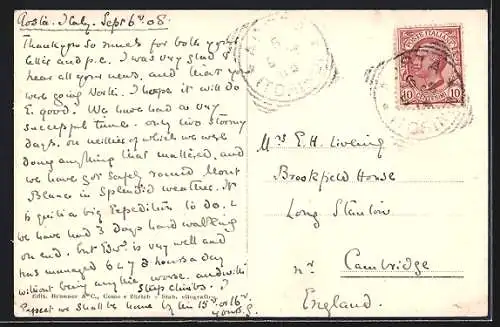 Aosta. Italy. Sept 6th 08.
Thank you so much for both your
letter and p.c. I was very glad to
hear all your news, and that you
were going North. I hope it will do
E. good. We have had a very
successful time. only two stormy
days, on neither of which we were
doing anything that mattered, and
we have got safely round Mont
Blanc in splendid weather. It
is quite a big expedition to do. &
we have had 3 days hard walking
on end. but Edwd is very well and
has managed 6 & 7 hours a day
without being any the worse. and with
steep climbs.
Expect we shall be home by the 15 or 16th.
yours
Edit. Brunner & C., Como e Zürich
Stab. eliografico
POSTE ITALIANE
10 10
(TORINO)
(TORINO)
Mrs E. H. Liveing
Brookfield House
Long Stanton
nr Cambridge
England.